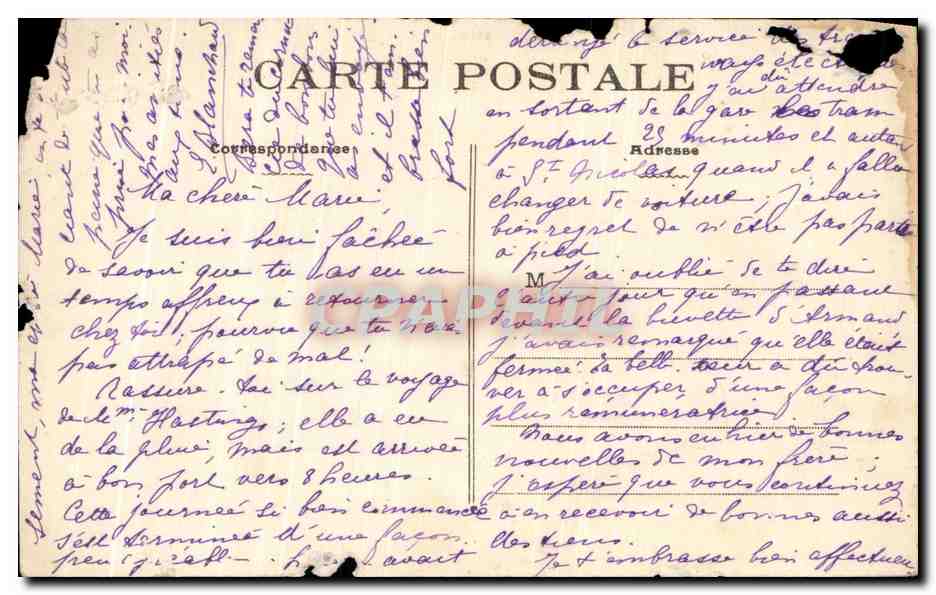 CARTE POSTALE
Correspondance
Adresse
M
Ma chère Marie,
Je suis bien fâchée
de savoir que tu as eu un
temps affreux à retourner
chez toi; pourvu que tu n'aie
pas attrapé de mal!
Rassure-toi sur le voyage
de Mme Hastings, elle a eu
de la pluie, mais est arrivée
à bon port vers 8 heures.
Cette journée si bien commencée
s'est terminée d'une façon
avait
dérangé le service des
j'ai dû attendre
en sortant de la gare le tram
pendant 25 minutes et autant
à St Nicolas quand il a fallu
changer de voiture, j'avais
bien regret de n'être pas partie
à pied
J'ai oublié de te dire
l'autre jour qu'en passant
devant la buvette d'Armand
j'avais remarqué qu'elle était
fermée. Ta belle-sœur a dû trou-
ver à s'occuper d'une façon
plus rémunératrice
Nous avons eu hier de bonnes
nouvelles de mon frère;
j'espère que vous continuez
à en recevoir de bonnes aussi
des tiens.
Je t'embrasse bien affectueu
sement, ma chère Marie
prie pour moi.
Mes amitiés
aux tiens.
Papa te remer
cie du cornet
de bonbons
que tu lui
as envoyé
et il t'em
brasse bien
fort
CPAPHIL